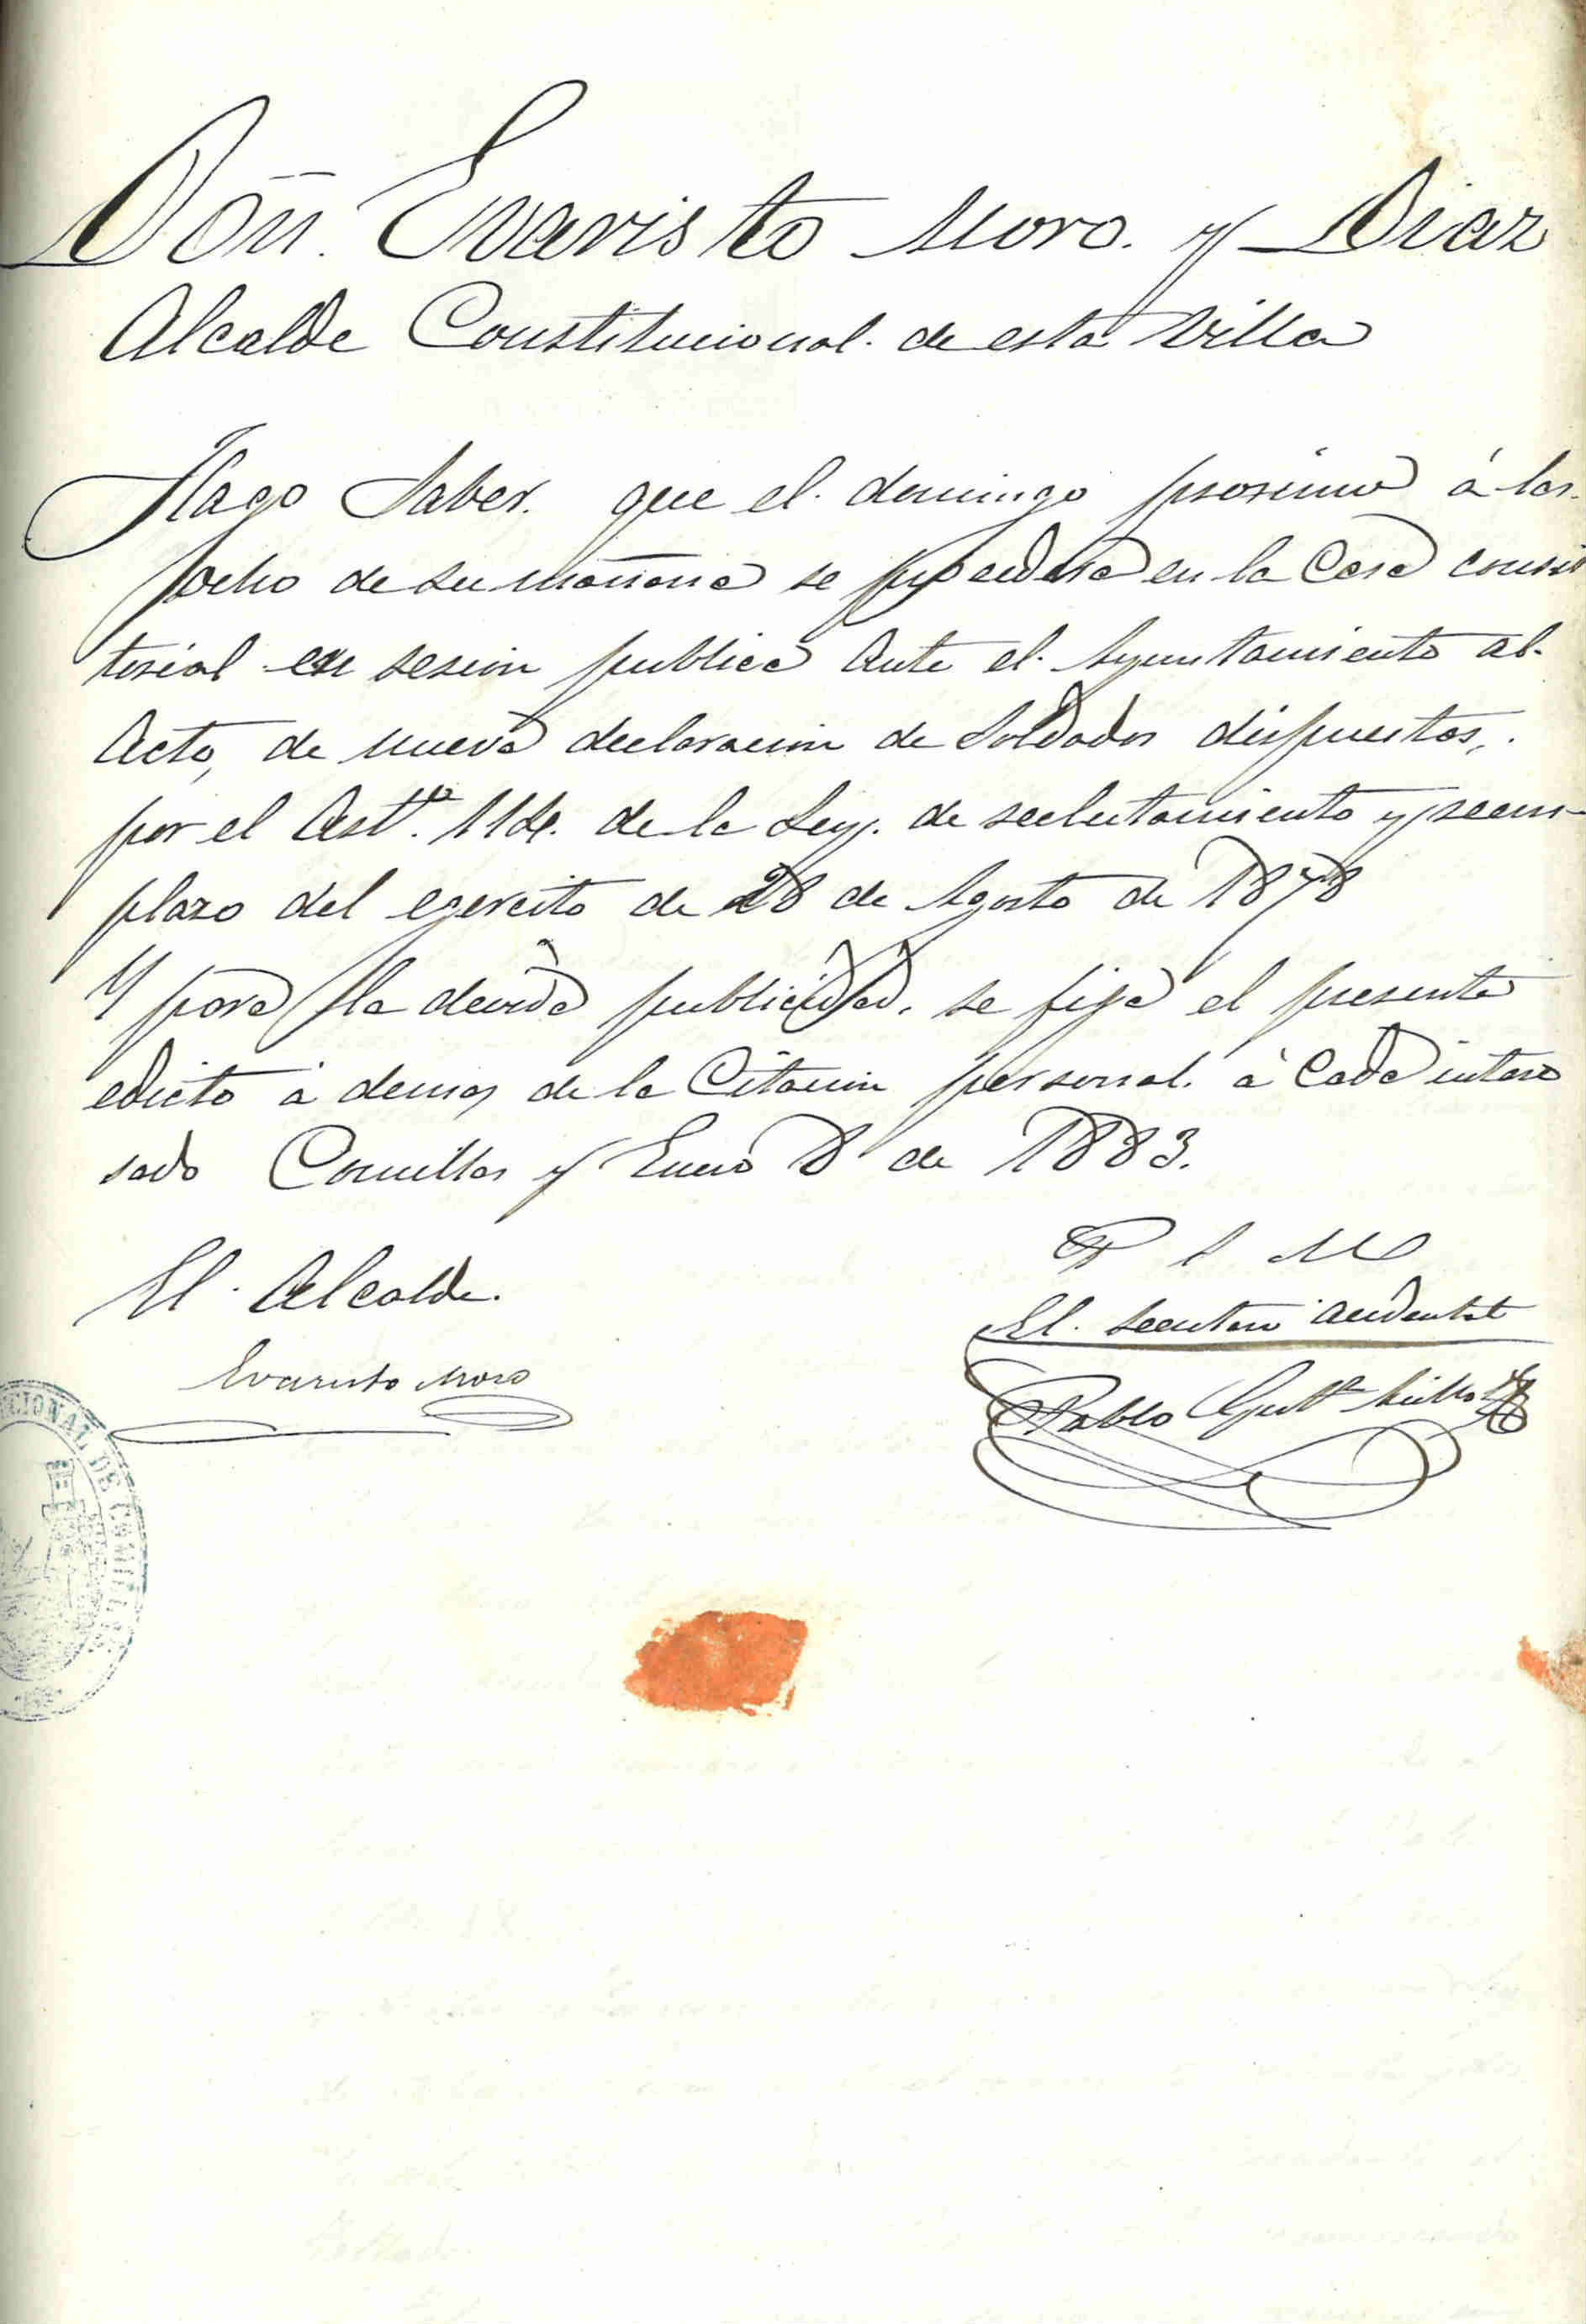 Don. Evaristo Moro. y Diaz
Alcalde Constitucional. de esta Villa
Hago Saber. que el. domingo prosimo á las.
ocho de su mañana se procederá en la Casa consis
torial en sesion publica Ante el. Ayuntamiento al.
Acto, de nueva declaracion de Soldados dispuestos,.
por el Artº. 114. de la Ley. de reclutamiento y reem
plazo del egercito de 28 de Agosto de 1878
Y para la devida publicidad. se fija el presente
edicto á demas de la Citacion personal. á Cada intere
sado Comillas y Enero 8 de 1883.
El. Alcalde.
P S M
El. Secretario accidental
Evaristo Moro
Pablo Gutz
CIONAL DE COMILLAS